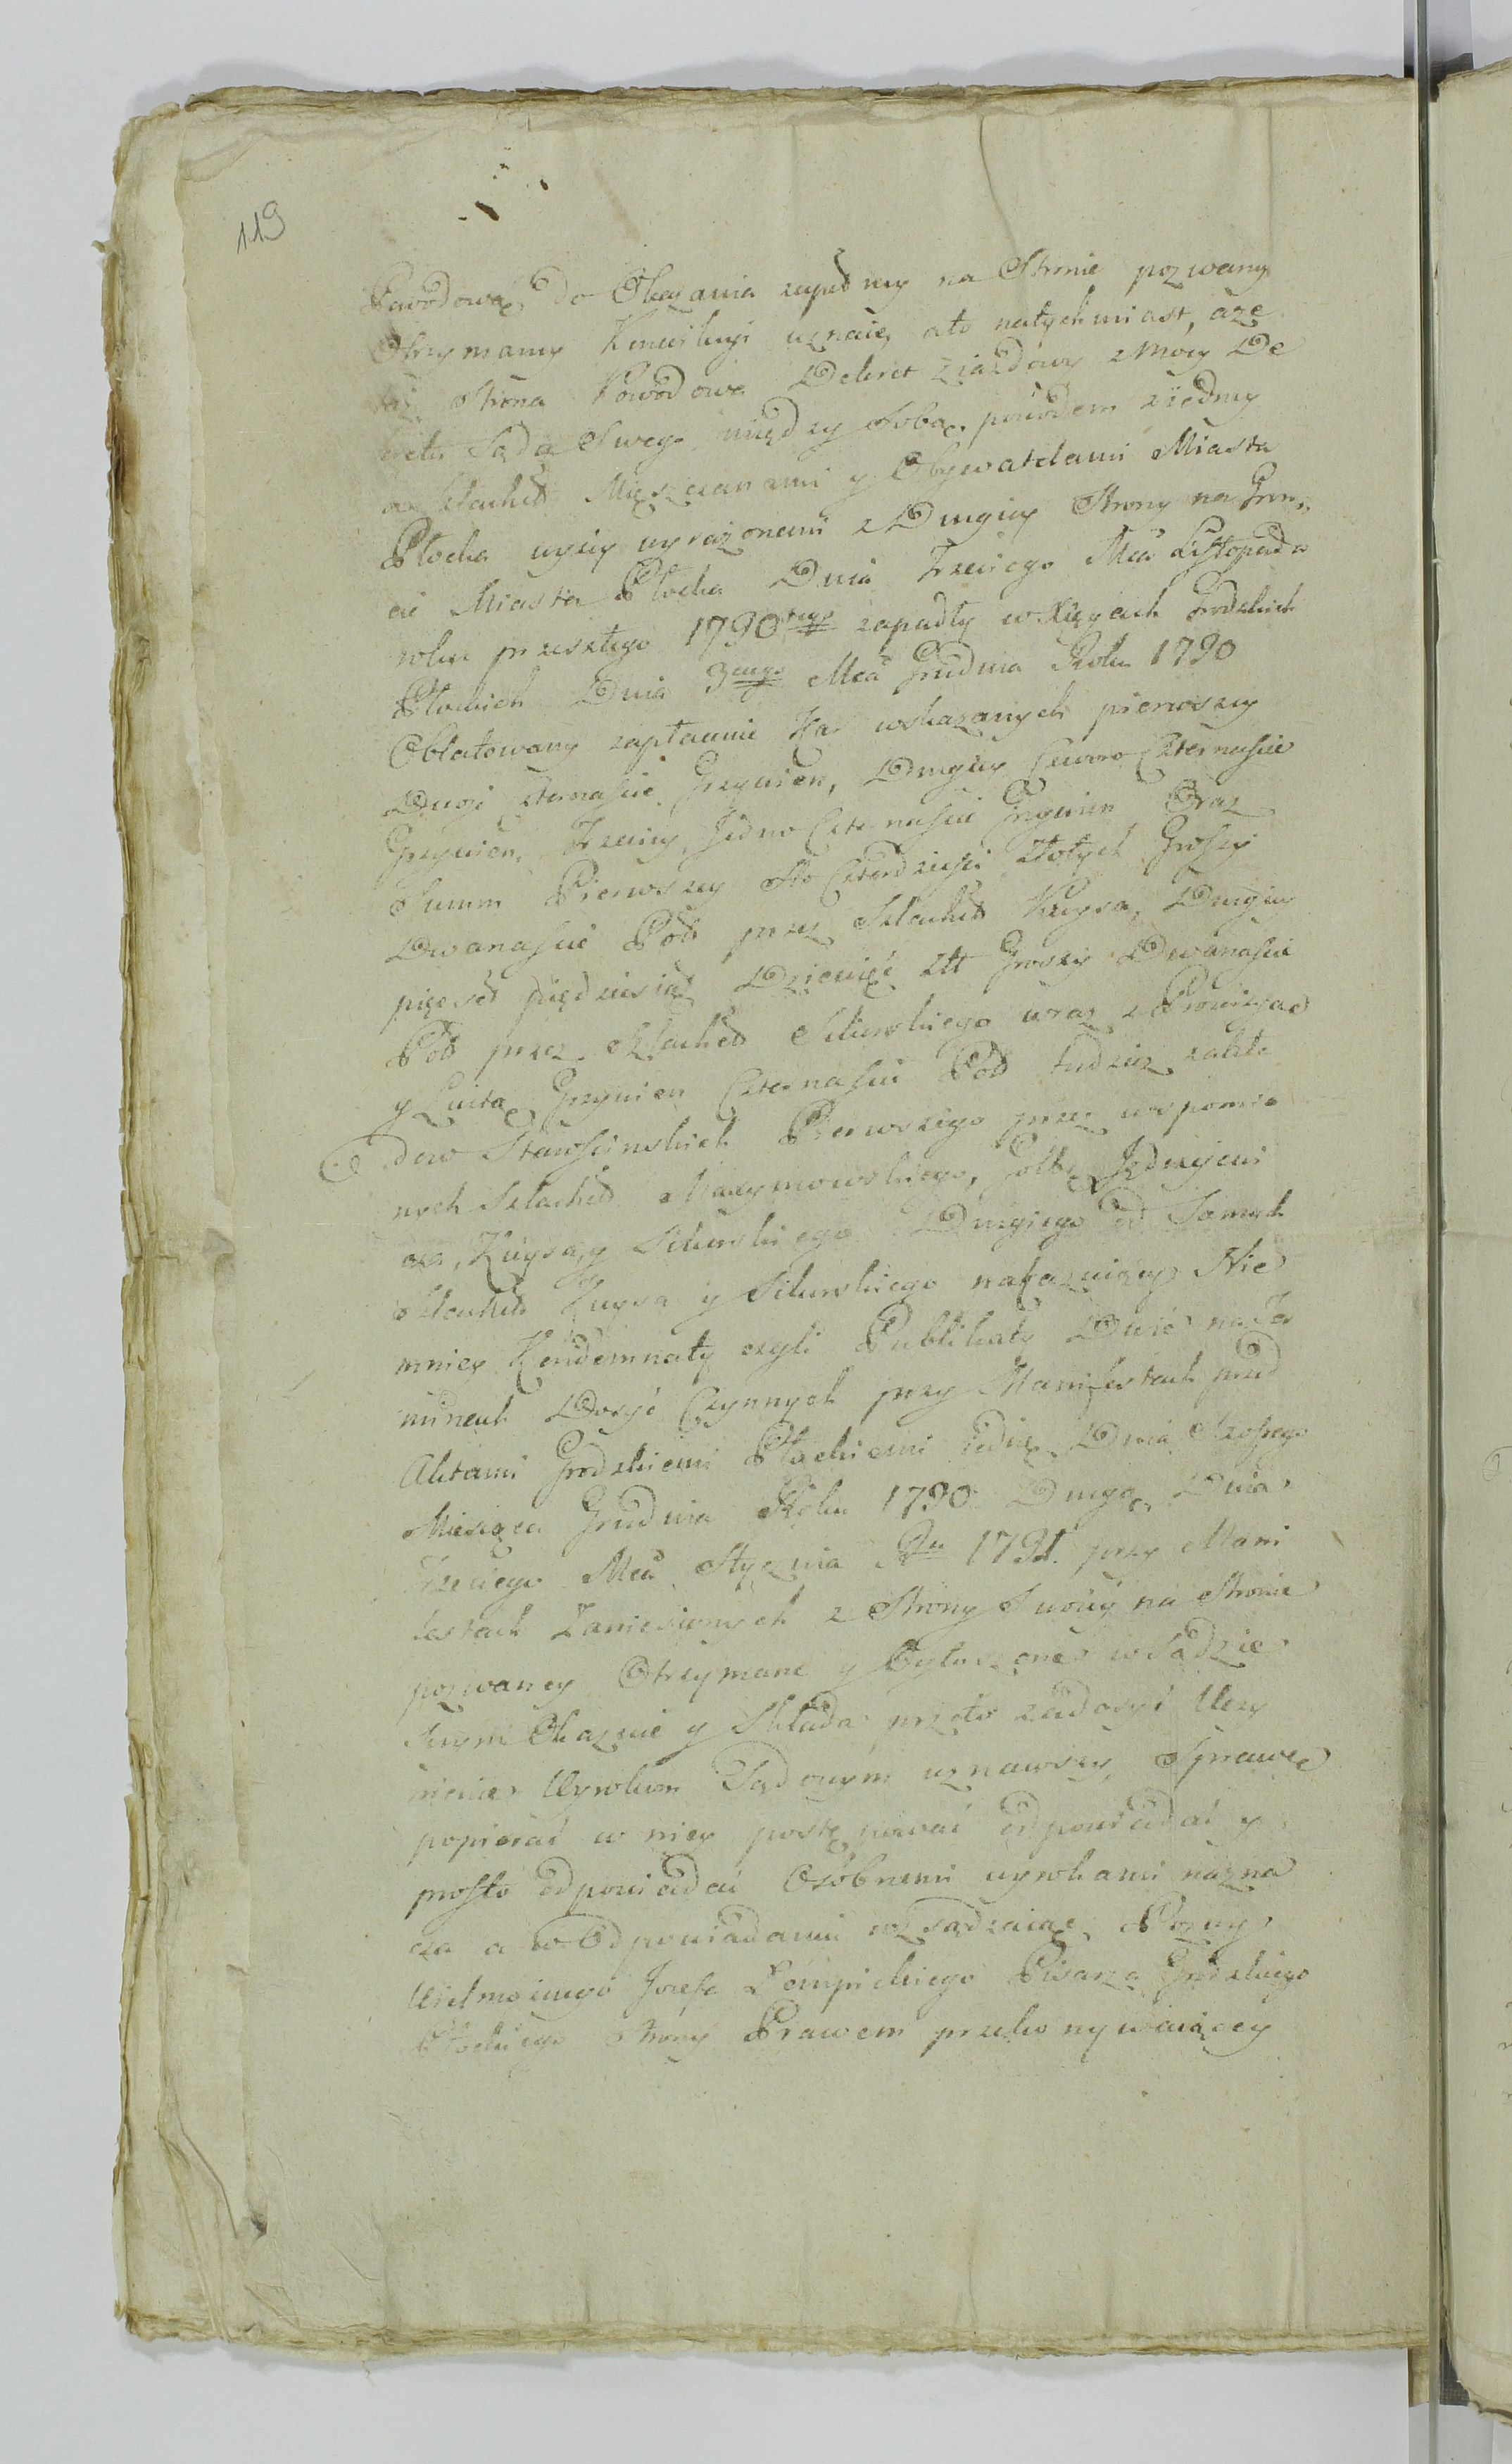 119
Powodową do Okazania zupełney na Stronie pozwaney
Otrzymaney Kondemnaty uznaie, ato natychmiast, aże
taż Strona Powodowa Dekret Ziazdowy z Mocy De
kretu Sądu Swego między Sobą powodem z iedney
a Szlachet Mięszczanami y Obywatelami Miasta
Płocka wyżey wyrażonemi z Drugiey Strony na Grun,,
cie Miasta Płocka Dnia Trzeciego Mca Listopada
roku przeszłego 1790tego zapadły w Xięgach Grodzkich
Płockich Dnia 3ciego Mca Grudnia Roku 1790
Oblatowany zapłacenie Kar wskazanych pierwszey
Dwoie Czternaście Grzywien, Drugiey Czworo Czternaście
Grzywien, Trzeciey Jedno Czternaście Grzywien Oraz
Summ Pierwszey Sto Czterdzieści Złotych Groszy
Dwanaście Pol przez Szlachet Kuysa, Drugiey
pięcset piędziesiąt Dziewięć Złt Groszy Dwanaście
Pol przez Szlachet Sikorskiego wraz z Prowizyą
y Luitą Grzywien Czternaście Pol tudzież zakła
dow Staroscinskich Pierwszego przez wspomnio
nych Szlachet Maxymowskiego, Jędrzejewi
cza, Kuysa, y Sikorskiego Drugiego od Samych
Szlachet Kuysa y Sikorskiego nakazuiący Nie
mniey Kondemnaty czyli Publikaty Dwie na Te
rminach Dosyć Czynnych przy Manifestach przed
Aktami Grodzkiemi Płockiemi iednę Dnia Szostego
Miesiąca Grudnia Roku 1790 Drugą Dnia
Trzeciego Mca Stycznia Ru 1791. przy Mani
festach Zaniesionych z Strony Swoiey na Stronie
pozwaney Otrzymane y Ogłoszone w Sądzie
Swym Okazuie y Składa przeto zadosyć Uczy
nienie Wyrokom Sądowym uznawszy, Sprawę
popierać w niey postępować odpowiadać y
prosto odpowiadać Osobnemi wyrokami nazna
cza a w Odpowiadaniu rozsądzaiąc Pozwy
Wielmożnego Jozefa Lempickiego Pisarza Grodzkiego
Płockiego Strony Prawem przekonywaiącey